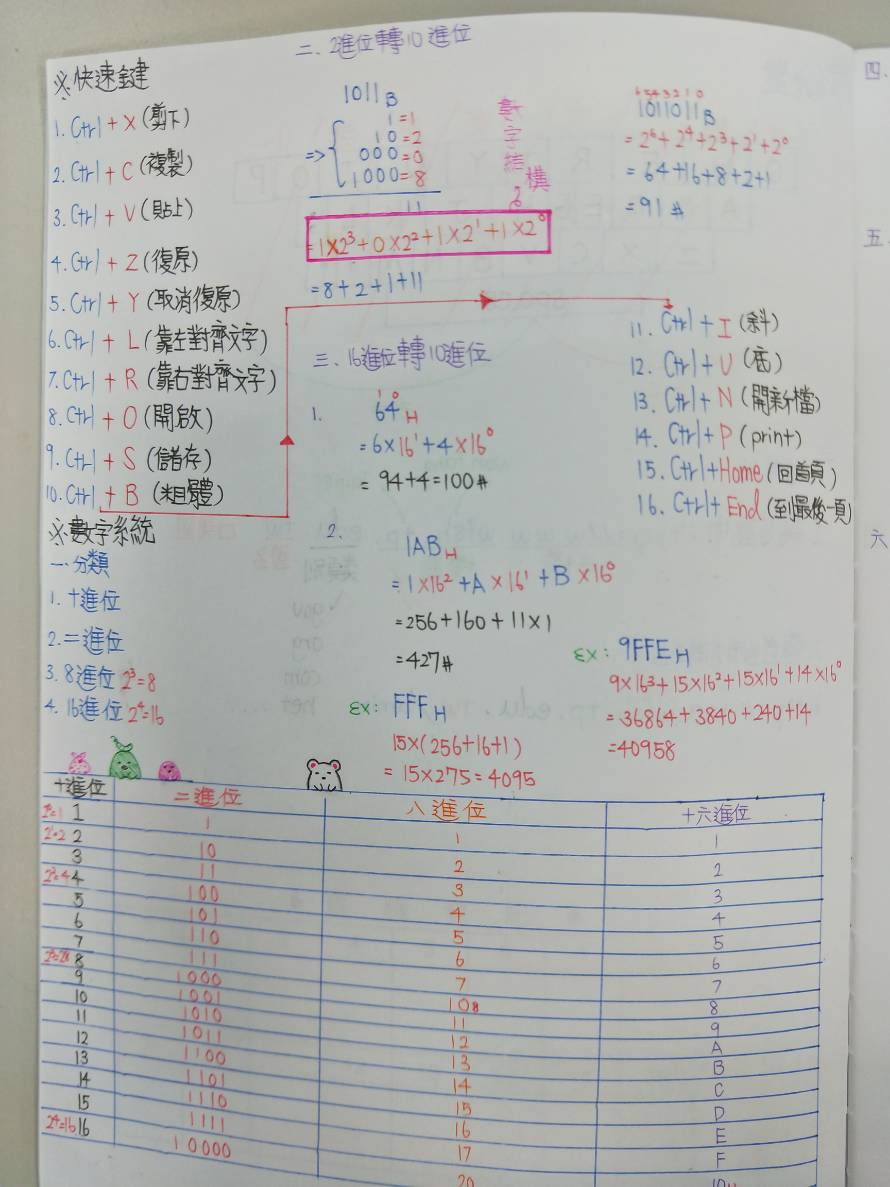 ※快速鍵
1. Ctrl + X (剪下)
2. Ctrl + C (複製)
3. Ctrl + V (貼上)
4. Ctrl + Z (復原)
5. Ctrl + Y (取消復原)
6. Ctrl + L (靠左對齊文字)
7. Ctrl + R (靠右對齊文字)
8. Ctrl + O (開啟)
9. Ctrl + S (儲存)
10. Ctrl + B (粗體)
11. Ctrl + I (斜)
12. Ctrl + U (底)
13. Ctrl + N (開新檔)
14. Ctrl + P (print)
15. Ctrl + Home (回首頁)
16. Ctrl + End (到最後一頁)
※數字系統
一、分類
1. 十進位
2. 二進位
3. 8進位 2³=8
4. 16進位 2⁴=16
二、2進位轉10進位
1011B
1=1
10=2
=> 000=0
1000=8
11
數字結構
=1×2³+0×2²+1×2¹+1×2⁰
=8+2+1+11
6 5 4 3 2 1 0
1011011B
=2⁶+2⁴+2³+2¹+2⁰
=64+16+8+2+1
=91#
三、16進位轉10進位
1 0
1. 64H
=6×16¹+4×16⁰
=94+4=100#
2. 1AB H
=1×16²+A×16¹+B×16⁰
=256+160+11×1
=427#
ex: FFF H
15×(256+16+1)
=15×275=4095
ex: 9FFE H
9×16³+15×16²+15×16¹+14×16⁰
=36864+3840+240+14
=40958
十進位 二進位 八進位 十六進位
2⁰=1 1 1 1 1
2¹=2 2 10 2 2
3 11 3 3
2²=4 4 100 4 4
5 101 5 5
6 110 6 6
7 111 7 7
8 1000 10 8 8
9 1001 11 9
10 1010 12 A
11 1011 13 B
12 1100 14 C
13 1101 15 D
14 1110 16 E
15 1111 17 F
2⁴=16 16 10000 20 10H
四、
五、
六